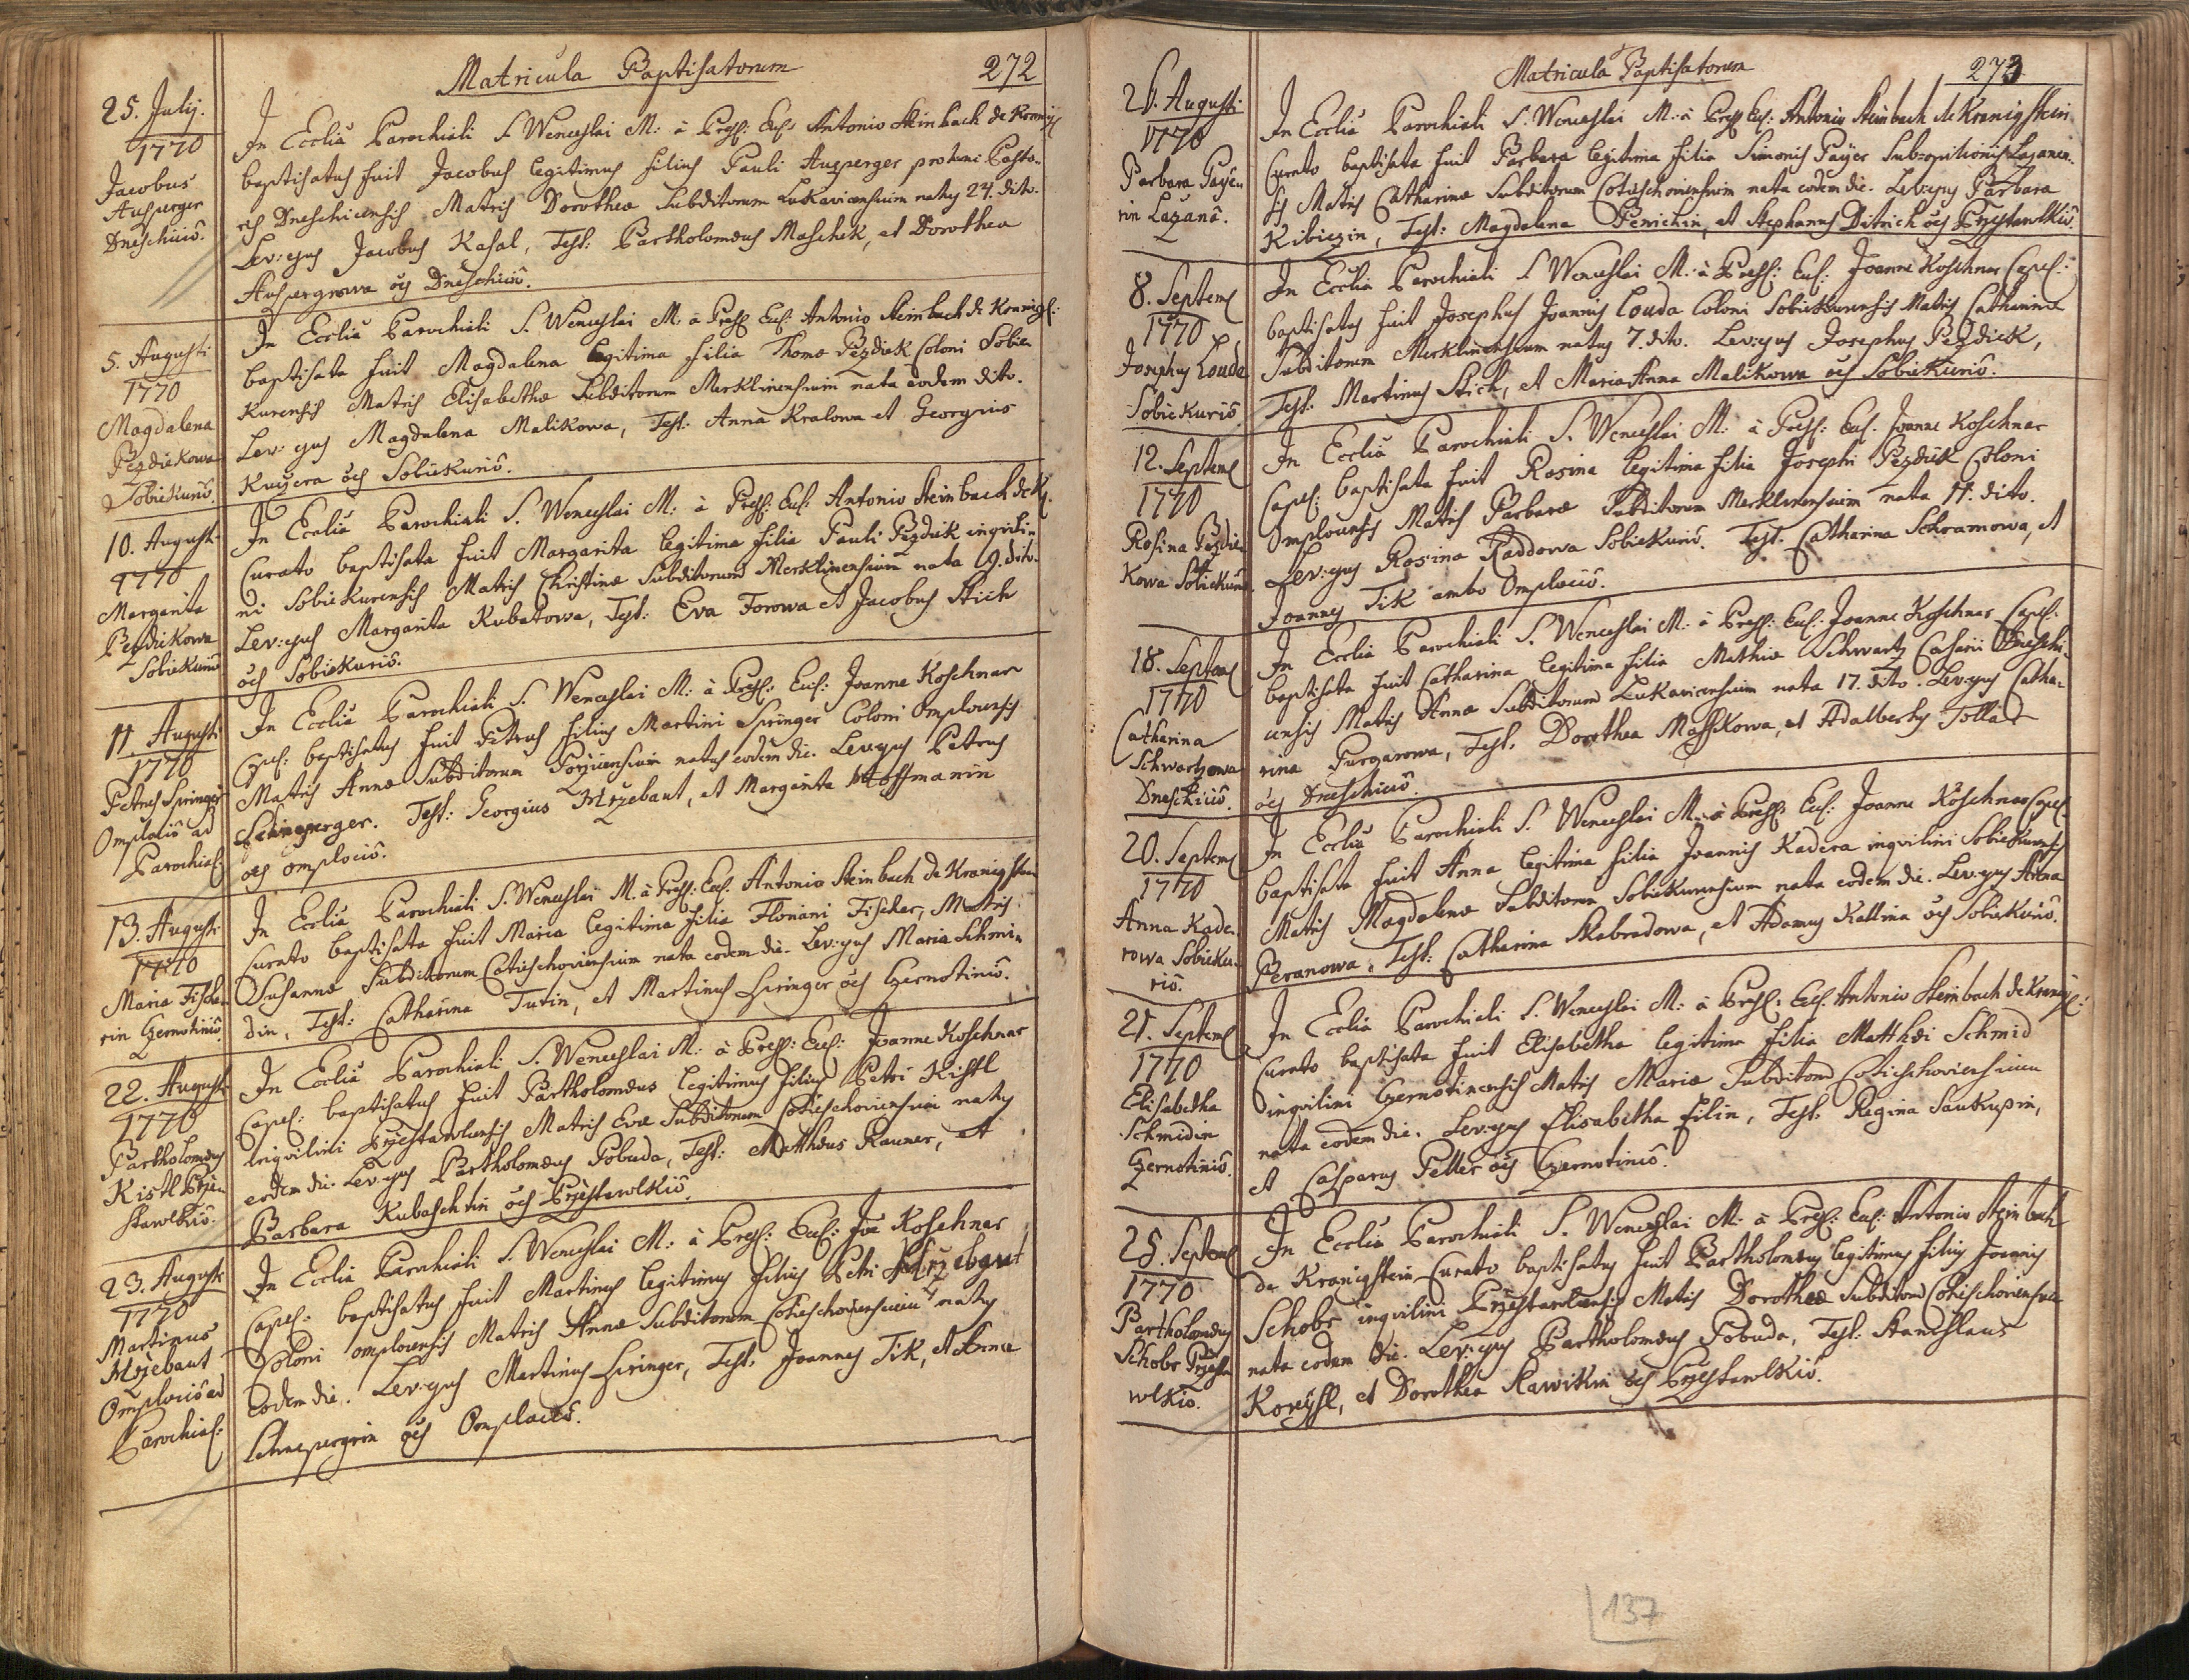 Matricula Baptisatorum 272
25. Julij.
1770
Jacobus
Ausperger
Dneschiciô.
In Ecclia Parochiali S. Wenceslai M: à Presb: Eccl: Antonio Steinbach de Kranigs
baptisatus fuit Jacobus legitimus filius Pauli Ausperger protunc Pasto-
ris Dneschicensis Matris Dorotheæ Subditorum Lukavicensium natus 24. dito.
Lev: ejus Jacobus Kasal, Test: Bartholomæus Maschek, et Dorothea
Auspergrowa ōes Dneschiciô.
5. Augusti
1770
Magdalena
Pezdiekowa
Sobiekuriô.
In Ecclia Parochiali S. Wenceslai M: à Presb: Eccl: Antonio Steinbach de Kranigs:
baptisata fuit Magdalena legitima filia Thomæ Pezdiek Coloni Sobie
Kurensis Matris Elisabethæ Subditorum Merklinensium nata eodem dito.
Lev: ejus Magdalena Malikowa, Test: Anna Kralowa et Georgius
Kuczera ōes Sobiekuriô.
10. Augusti
1770
Margarita
Pezdikowa
Sobiekuriô
In Ecclia Parochiali S. Wenceslai M: à Presb: Eccl: Antonio Steinbach de K.
Curato baptisata fuit Margarita legitima filia Pauli Pezdiek inqvili-
ni Sobiekurensis Matris Christinæ Subditorum Merklinensium nata 9. dito.
Lev: ejus Margarita Kubatowa, Test: Eva Forowa et Jacobus Stich
ōes Sobiekuriô.
11. Augusti
1770
Petrus Springer
Omplociô ad
Parochias:
In Ecclia Parochiali S. Wenceslai M: à Presb: Eccl: Joanne Koschnar
Capel: baptisatus fuit Petrus filius Martini Springer Coloni Omplocensis
Matris Annæ Subditorum Porzicensium natus eodem die. Lev: ejus Petrus
Test: Georgius Mrzebaut, et Margarita Hoffmanin
ōes Omplociô.
13. Augusti
1770
Maria Fische-
rin Czernotiniô
In Ecclia Parochiali S. Wenceslai M. à Presb: Eccl. Antonio Steinbach de Kranigstein
Curato baptisata fuit Maria legitima filia Floriani Fischer, Matris
Susannæ Subditorum Cotieschoviensium nata eodem die. Lev: ejus Maria Schmi-
din, Test: Catharina Turin, et Martinus Siringer ōes Czernotiniô.
22. Augusti
1770
Bartholomæus
Kistl Przie
stawlkiô.
In Ecclia Parochiali S. Wenceslai M: à Presb: Eccl: Joanne Koschnar
Capel: baptisatus fuit Bartholomæus legitimus filius Petri Kistl
Inqvilini Przestawlcensis Matris Evæ Subditorum Cotieschoviensium natus
eodem die. Lev: ejus Bartholomæus Pobuda, Test: Matthæus Rauner, et
Barbara Kubaschtin ōes Przestawlkiô.
23. Augusti
1770
Martinus
Mrzebaut
Omplociô ad
Parochias:
In Ecclia Parochiali S. Wenceslai M: à Presb: Eccl: Joa Koschnar
Capel: baptisatus fuit Martinus legitimus filius Petri Mrzebaut
Coloni omplocensis Matris Annæ Subditorum Cotieschoviensium natus
Eodem die. Lev: ejus Martinus Siringer, Test. Joannes Tik, et Anna
ōes Omplociô.
Matricula Baptisatorum 273
Augusti
1770
Barbara Payer
rin Lazanô.
In Ecclia Parochiali S. Wenceslai M: à Presb Eccl: Antonio Steinbach de Kranigstein
Curato baptisata fuit Barbara legitima filia Simonis Payer Subopilionis Lazanen-
sis Matris Catharinæ Subditorum Cotieschoviensium nata eodem die. Lev: ejus Barbara
Kibiczin, Test: Magdalena Penichin, et Stephanus Ditrich ōes Przestawlkiô.
8. Septemb
1770
Josephus Louda
Sobiekuriô
In Ecclia Parochiali S Wenceslai M: à Presb: Eccl: Joanne Koschnar Capel:
baptisatus fuit Josephus Joannis Louda Coloni Sobiekurensis Matris Catharinæ
Subditorum Merklinensium natus 7. dito. Lev: ejus Josephus Pezdiek,
Test: Martinus Stich, et Maria Anna Malikowa ōes Sobiekuriô.
12. Septemb
1770
Rosina Pezdie
Kowa Sobiekuriô
In Ecclia Parochiali S. Wenceslai M: à Presb: Eccl. Joanne Koschnar
Capel: baptisata fuit Rosina legitima filia Josephi Pezdiek Coloni
Omplocensis Matris Barbaræ Subditorum Merklinensium nata 11. dito.
Lev: ejus Rosina Raddowa Sobiekuriô. Test. Catharina Schramowa, et
Joannes Tik ambo Omplociô.
18. Septemb
1770
Catharina
Schwartzowa
Dneschiciô.
In Ecclia Parochiali S. Wenceslai M: à Presb: Eccl: Joanne Koschnar Capel:
baptisata fuit Catharina legitima filia Mathiæ Schwartz Casarii Dneschi-
censis Matris Annæ Subditorum Lukavicensium nata 17. dito. Lev: ejus Catha-
rina Purgarowa, Test: Dorothea Maschkowa, et Adalbertus Tollar
ōes Dneschiciô.
20. Septemb
1770
Anna Kade-
rowa Sobieku-
riô.
In Ecclia Parochiali S. Wenceslai M: à Presb: Eccl: Joanne Koschnar Capel:
baptisata fuit Anna legitima filia Joannis Kadera inqvilini Sobiekurensis
Matris Magdalenæ Subditorum Sobiekurensium nata eodem die. Lev: ejus Anna
Beranowa, Test: Catharina Skabradowa, et Adamus Kallina ōes Sobiekuriô.
21. Septemb
1770
Elisabetha
Schmidin
Czernotiniô.
In Ecclia Parochiali S. Wenceslai M: à Presb: Eccl. Antonio Steinbach de Kranigs:
Curato baptisata fuit Elisabetha legitima filia Matthæi Schmid
inqvilini Czernotinensis Matris Mariæ Subditorum Cotieschoviensium
nata eodem die. Lev: ejus Elisabetha Filin, Test: Regina Saukupin,
et Casparus Peller ōes Czernotiniô.
25. Septemb
1770
Bartholomæus
Schobr Przesta
wlkiô.
In Ecclia Parochiali S. Wenceslai M: à Presb: Eccl: Antonio Steinbach
de Kranigstein Curato baptisatus fuit Bartholomæus legitimus filius Joannis
Schobr inqvilini Przestawlcensis Matris Dorotheæ Subditorum Cotieschoviensium
nata eodem die. Lev: ejus Bartholomæus Pobuda, Test: Stanislaus
Koreysl, et Dorothea Slawikin ōes Przestawlkiô.
137